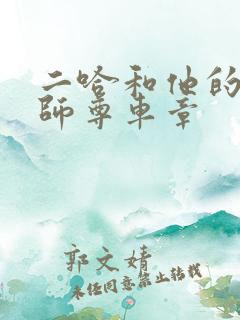 二哈和他的
師尊車章
郭文婧
未经同意禁止转载